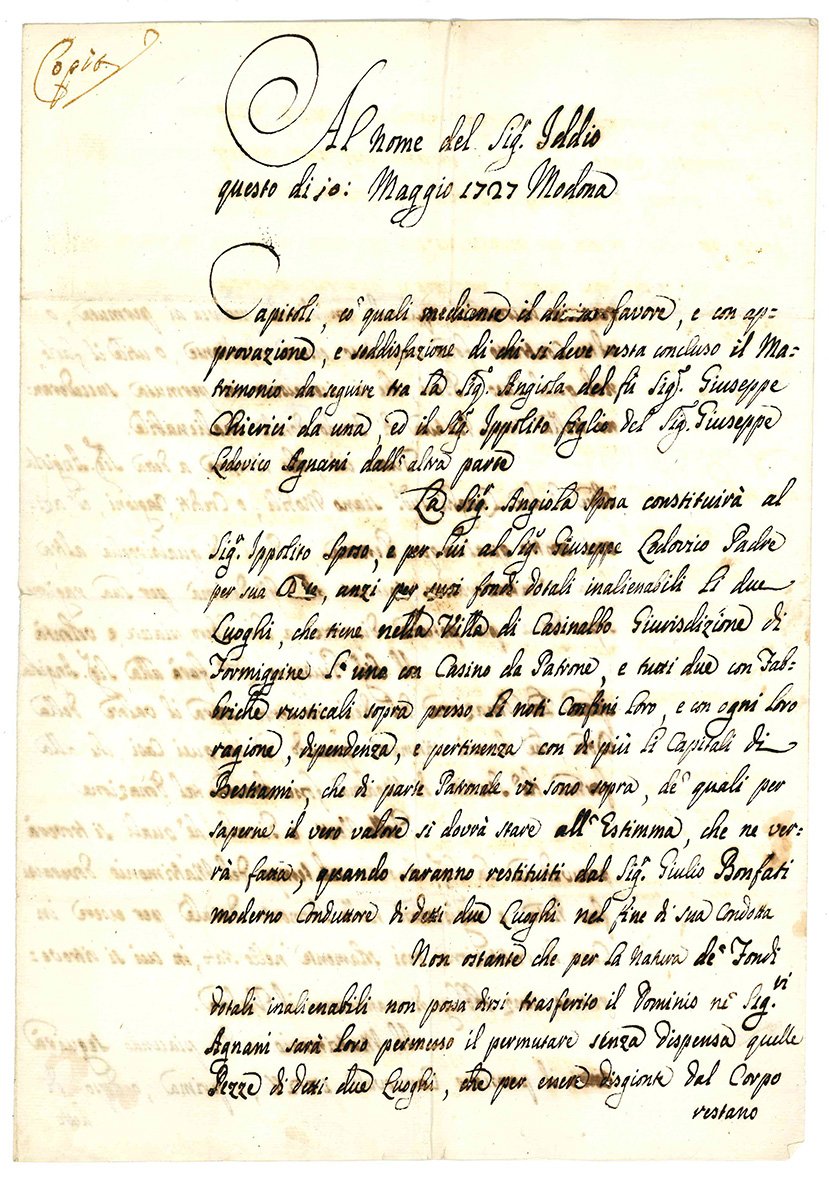 Copia
Al nome del Sig.r Iddio
questo di 10: Maggio 1727 Modona
Capitoli, co' quali mediante il divino favore, e con ap=
provazione, e soddisfazione di chi si deve resta concluso il Ma=
trimonio da seguire tra la Sig.a Angiola del fù Sig.r Giuseppe
Chierici da una, ed il Sig.r Ippolito figlio del Sig.r Giuseppe
Lodovico Agnani dall' altra parte
La Sig.a Angiola sposa constituirà al
Sig.r Ippolito sposo, e per lui al Sig.r Giuseppe Lodovico Padre
per sua anzi per suoi fondi dotali inalienabili li due
Luoghi, che tiene nella Villa di Casinalbo Giurisdizione di
Formiggine l'uno con Casino da Patrone, e tutti due con Fab=
briche rusticali sopra presso li noti Confini loro, e con ogni loro
ragione, dipendenza, e pertinenza con di più li Capitali di
Bestiami, che di parte Patronale vi sono sopra, de' quali per
saperne il vero valore si dovrà stare all' Estimma, che ne ver=
rà fatta, quando saranno restituiti dal Sig.r Giulio Bonfati
moderno Conduttore di detti due Luoghi nel fine di sua Condotta
Non ostante che per la Natura de' Fondi
dotali inalienabili non possa dirsi trasferito il Dominio ne' Sig.vi
Agnani sarà loro permesso il permutare senza dispensa quelle
Pezze di detti due Luoghi, che per essere disgionte dal Corpo
restano